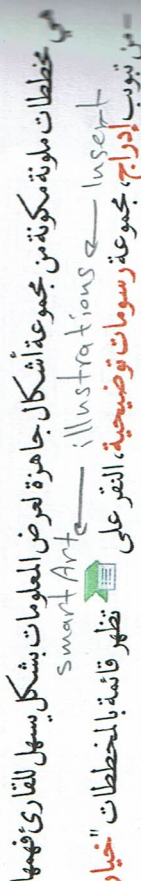 هي مخططات ملونة مكونة من مجموعة أشكال جاهزة لعرض المعلومات بشكل يسهل للقارئ فهمها
Insert ← illustrations ← smart Art
– من تبويب إدراج، مجموعة رسومات توضيحية، النقر على تظهر قائمة بالمخططات "خيار